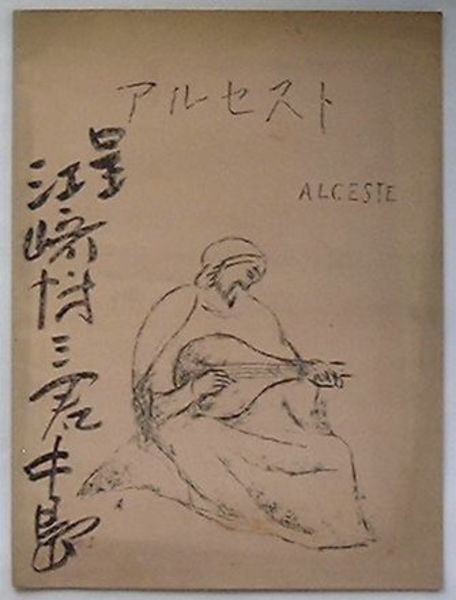 アルセスト
ALCESTE
呈
江崎博三君 中島